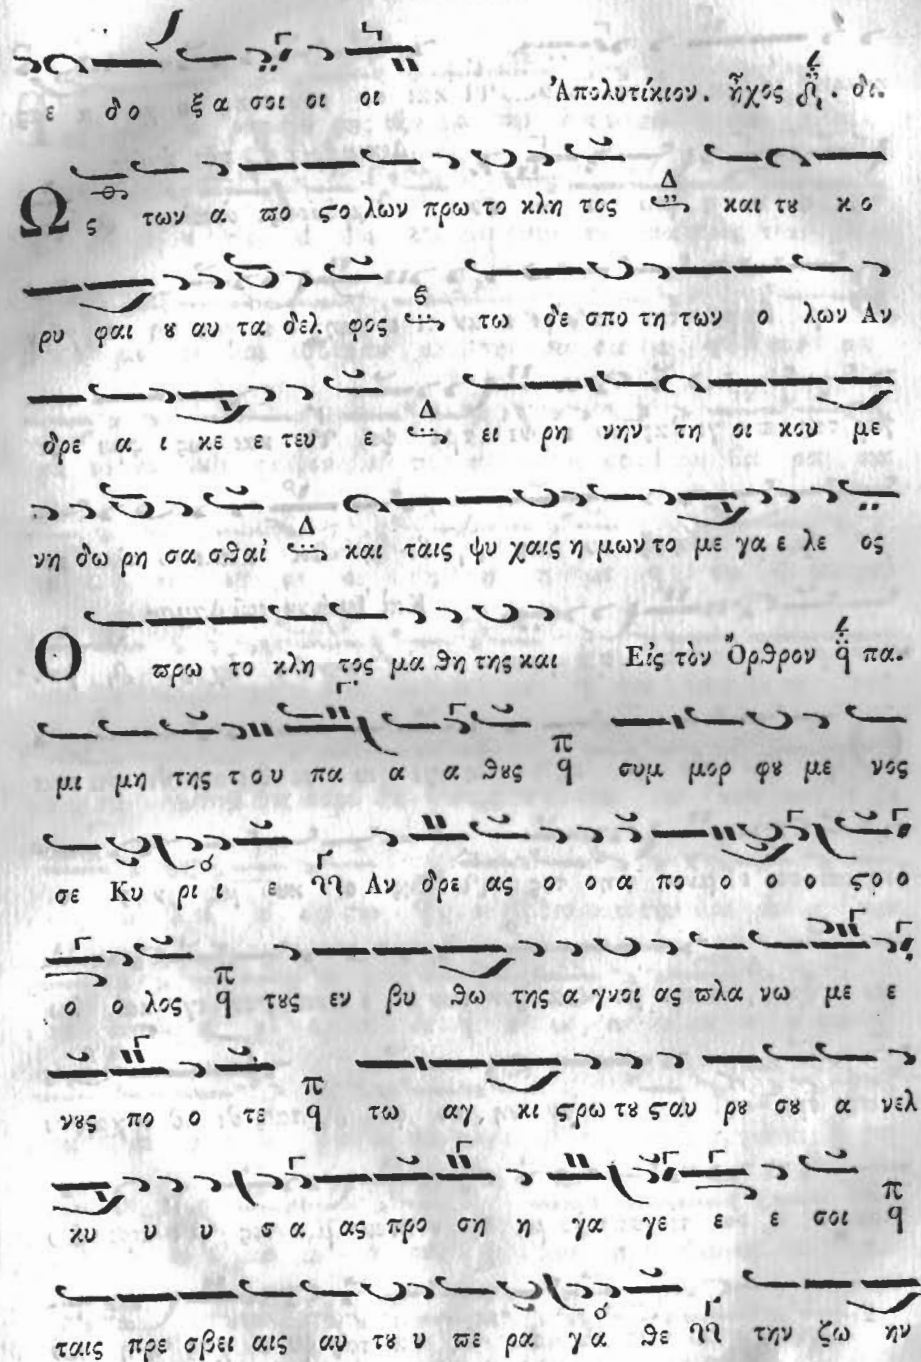 ε δο ξα σοι οι οι Ἀπολυτίκιον. ἦχος δι.
Ως των α ϖο ϛο λων πρω το κλη τος Δ και τȣ κο
ρυ φαι ȣ αυ τα δελ φος ϛ τω δε σπο τη των ο λων Αν
δρε α ι κε ε τευ ε Δ ει ρη νην τη οι κου με
νη δω ρη σα σθαι Δ και ταις ψυ χαις η μων το με γα ε λε ος
Ο ϖρω το κλη τος μα θη της και Εἰς τὸν Ὄρθρον q πα.
μι μη της του πα α α θȣς π q συμ μορ φȣ με νος
σε Κυ ρι ι ε Αν δρε ας ο ο α πο ο ο ο ϛο ο
ο ο λος π q τȣς εν βυ θω της α γνοι ας ϖλα νω με ε
νȣς πο ο τε π q τω αγ κι ϛρω τȣ ϛαυ ρȣ σȣ α νελ
κυ υ υ σα ας προ ση η γα γε ε ε σοι π q
ταις πρε σβει αις αυ τȣ υ ϖε ρα γα θε την ζω ην